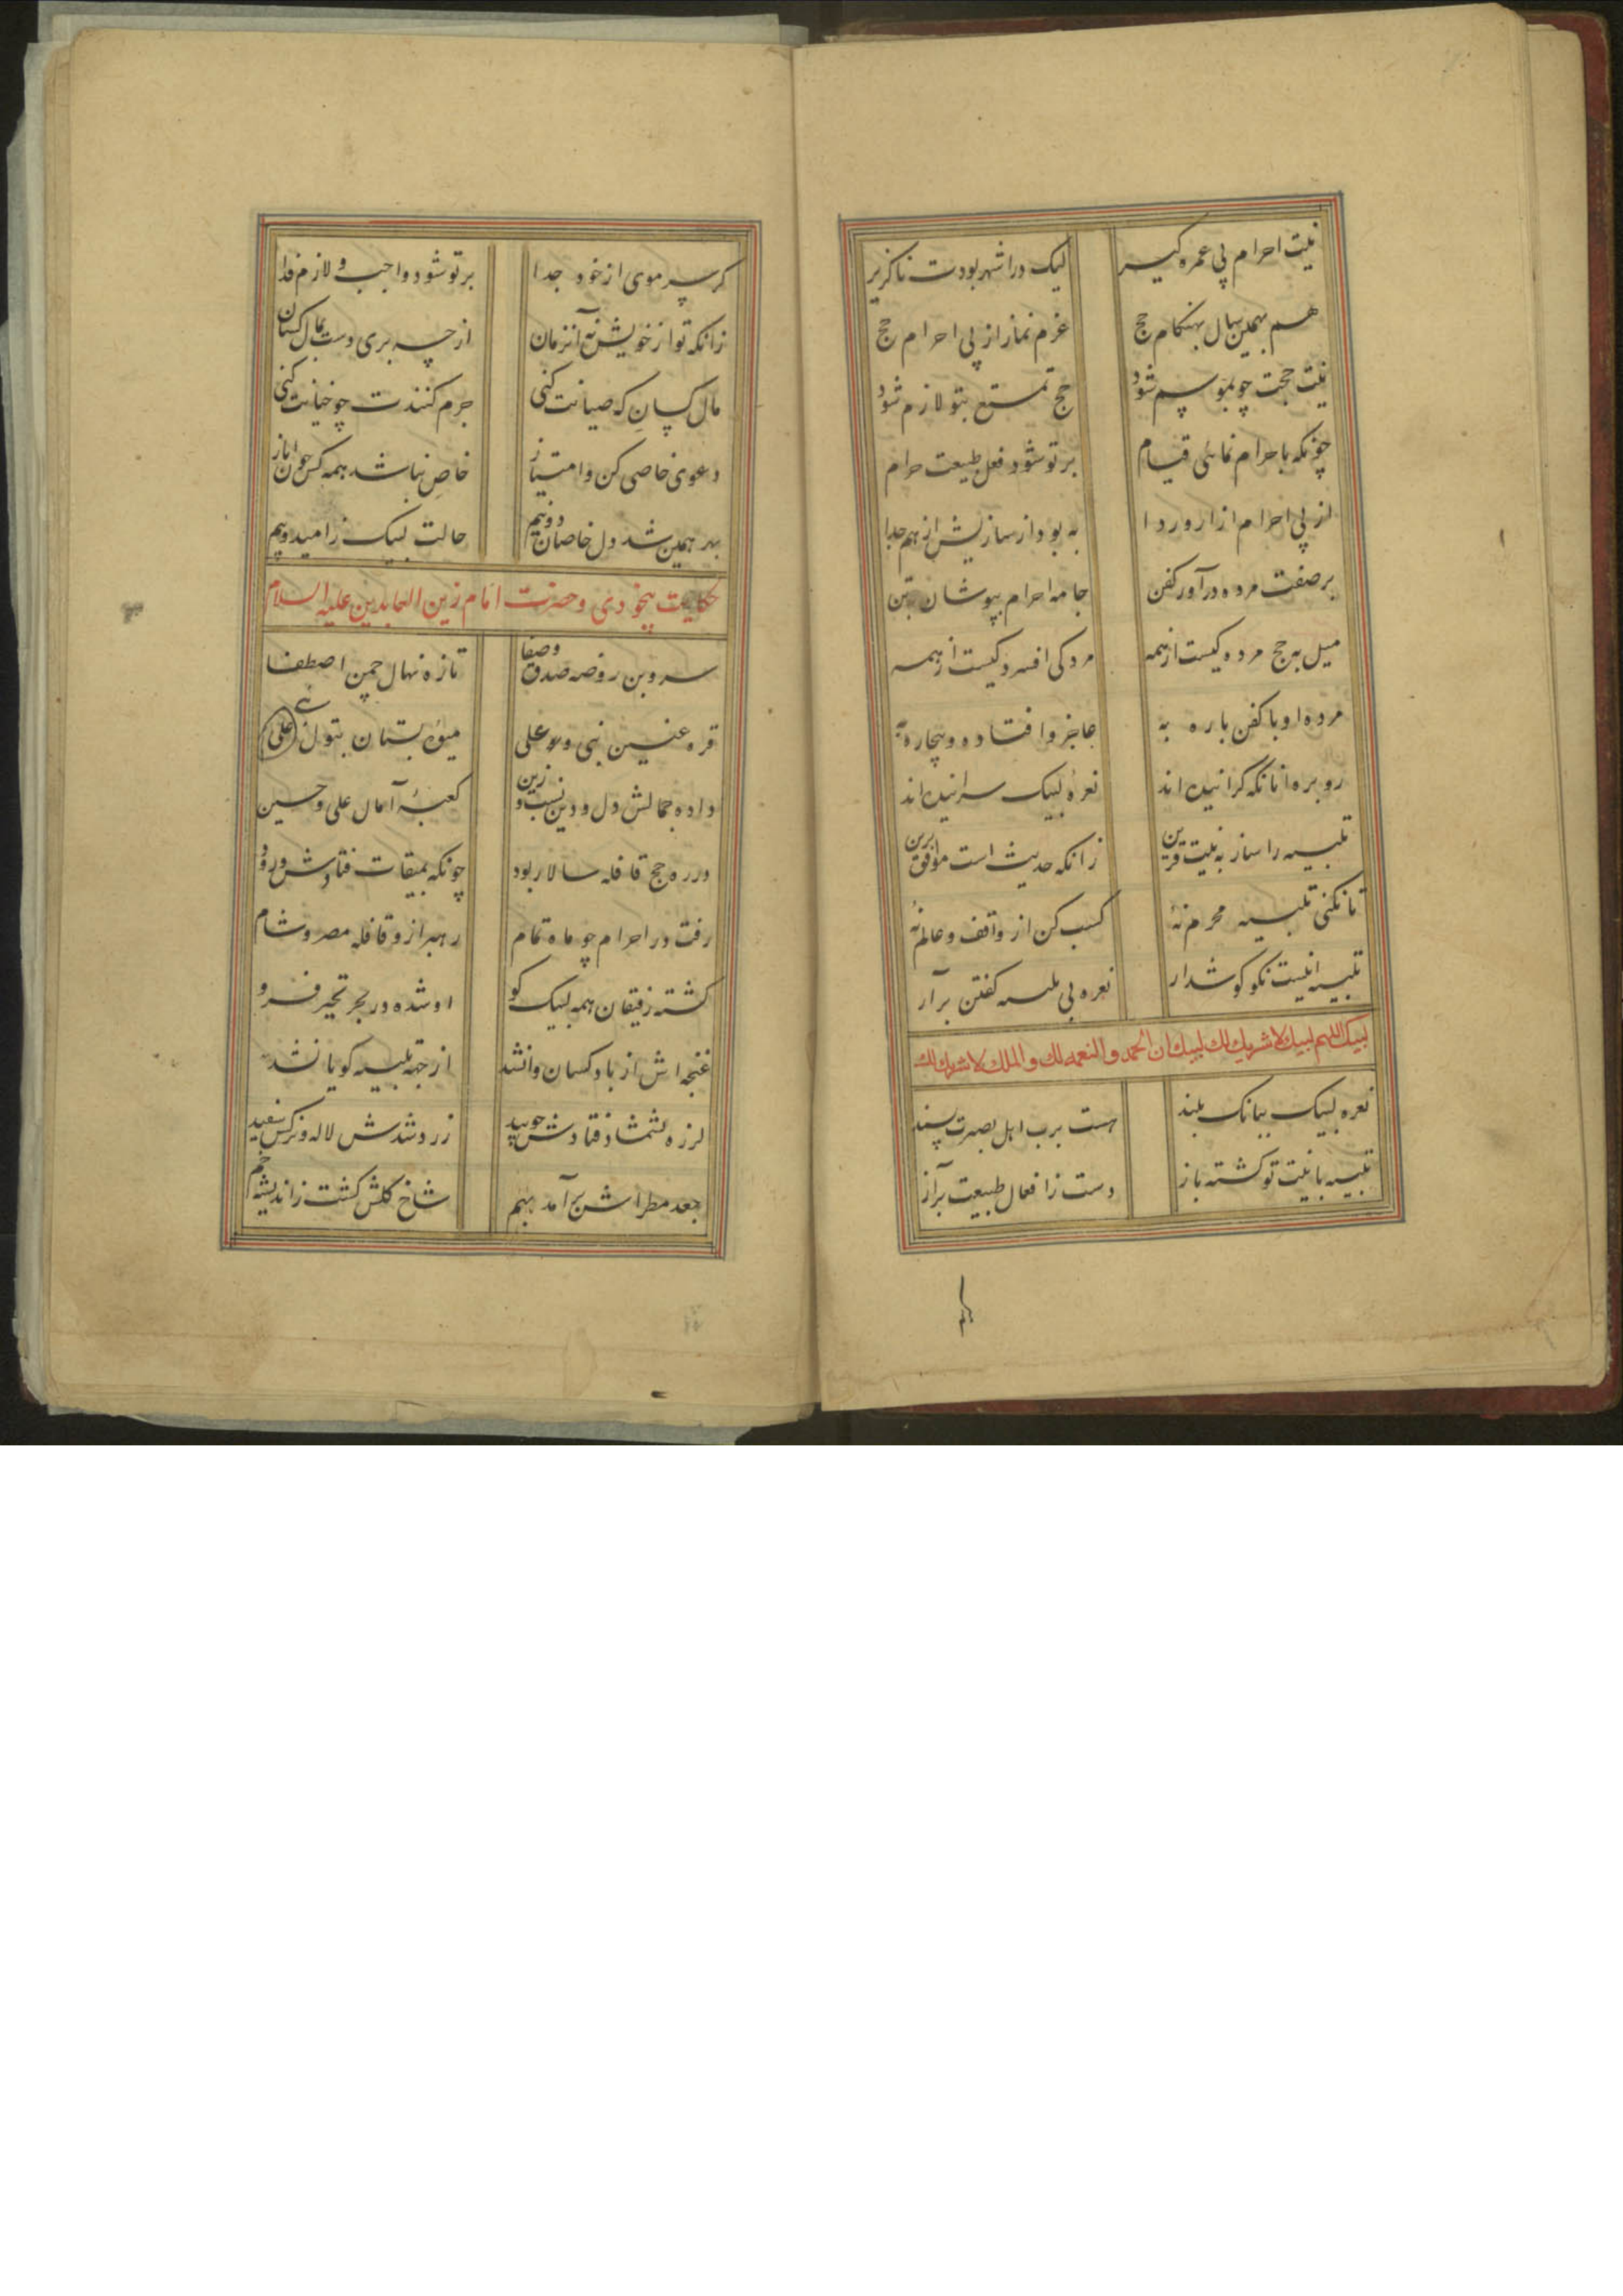 نیت احرام پی عمره کیر لیک در اشهر بودت ناکزیر
هم بهمین سال بهنکام حج عزم نماز از پی احرام حج
نیت حجت چو بموسم شود حج تمتع بتو لازم شود
چونکه باحرام نمائی قیام بر تو شود فعل طبیعت حرام
از پی احرام ازار و ردا به بود ار سازیش از هم جدا
بر صفت مرده در آور کفن جامه احرام بپوشان بتن
میل به حج مرده کیست از همه مردکی افسردکیست از همه
مرده او با کفن پاره به عاجز و افتاده و بیچاره به
رو بره آنانکه کرانیده اند نعرهٔ لبیک سرانیده اند
تلبیه را ساز به نیت قرین زانکه حدیث است موافق برین
تا نکنی تلبیه محرم نهٔ کسب کن از واقف و عالم نهٔ
تلبیه اینست نکو کوشدار نعره بی تلبیه کفتن برآر
لبیک اللهم لبیک لا شریک لک لبیک ان الحمد و النعمه لک و الملک لا شریک لک
نعره لبیک ببانک بلند هست بر اهل بصیرت پسند
تلبیه با نیت تو کشته باز دست ز افعال طبیعت برآر
کر سر موی از خود جدا بر تو شود واجب و لازم فدا
زانکه تو از خویش نهٔ آنزمان از چه بری دست بمال کسان
مال کسان که صیانت کنی جرم کنندت چو خیانت کنی
دعوی خاصی کن و امتیاز خاص نباشد همه کس چون ایاز
بهر همین شد دل خاصان دو نیم حالت لبیک ز امید و بیم
حکایت بیخودی و حضرت امام زین العابدین علیه السلام
سرو بن روضه صدق و صفا تازه نهال چمن اصطفا
قره عنین نبی و علی میوهٔ بستان بتول علی
داده جمالش دل و دین زیب و زین کعبهٔ آمال علی و حسین
در ره حج قافله سالار بود چونکه بمیقات فتادش ورود
رفت در احرام چو ماه تمام رهبر ازو قافله مصر و شام
کشته رفیقان همه لبیک کو او شده در بحر تحیر فرو
غنچه اش از باد کسان وا نشد از جهة تلبیه کویا نشد
لرزه بشمشاد فتادش چو بید زرد شدش لاله و نرکس سفید
جعد مطراش آمد بهم شاخ کلش کشت ز اندیشه خم